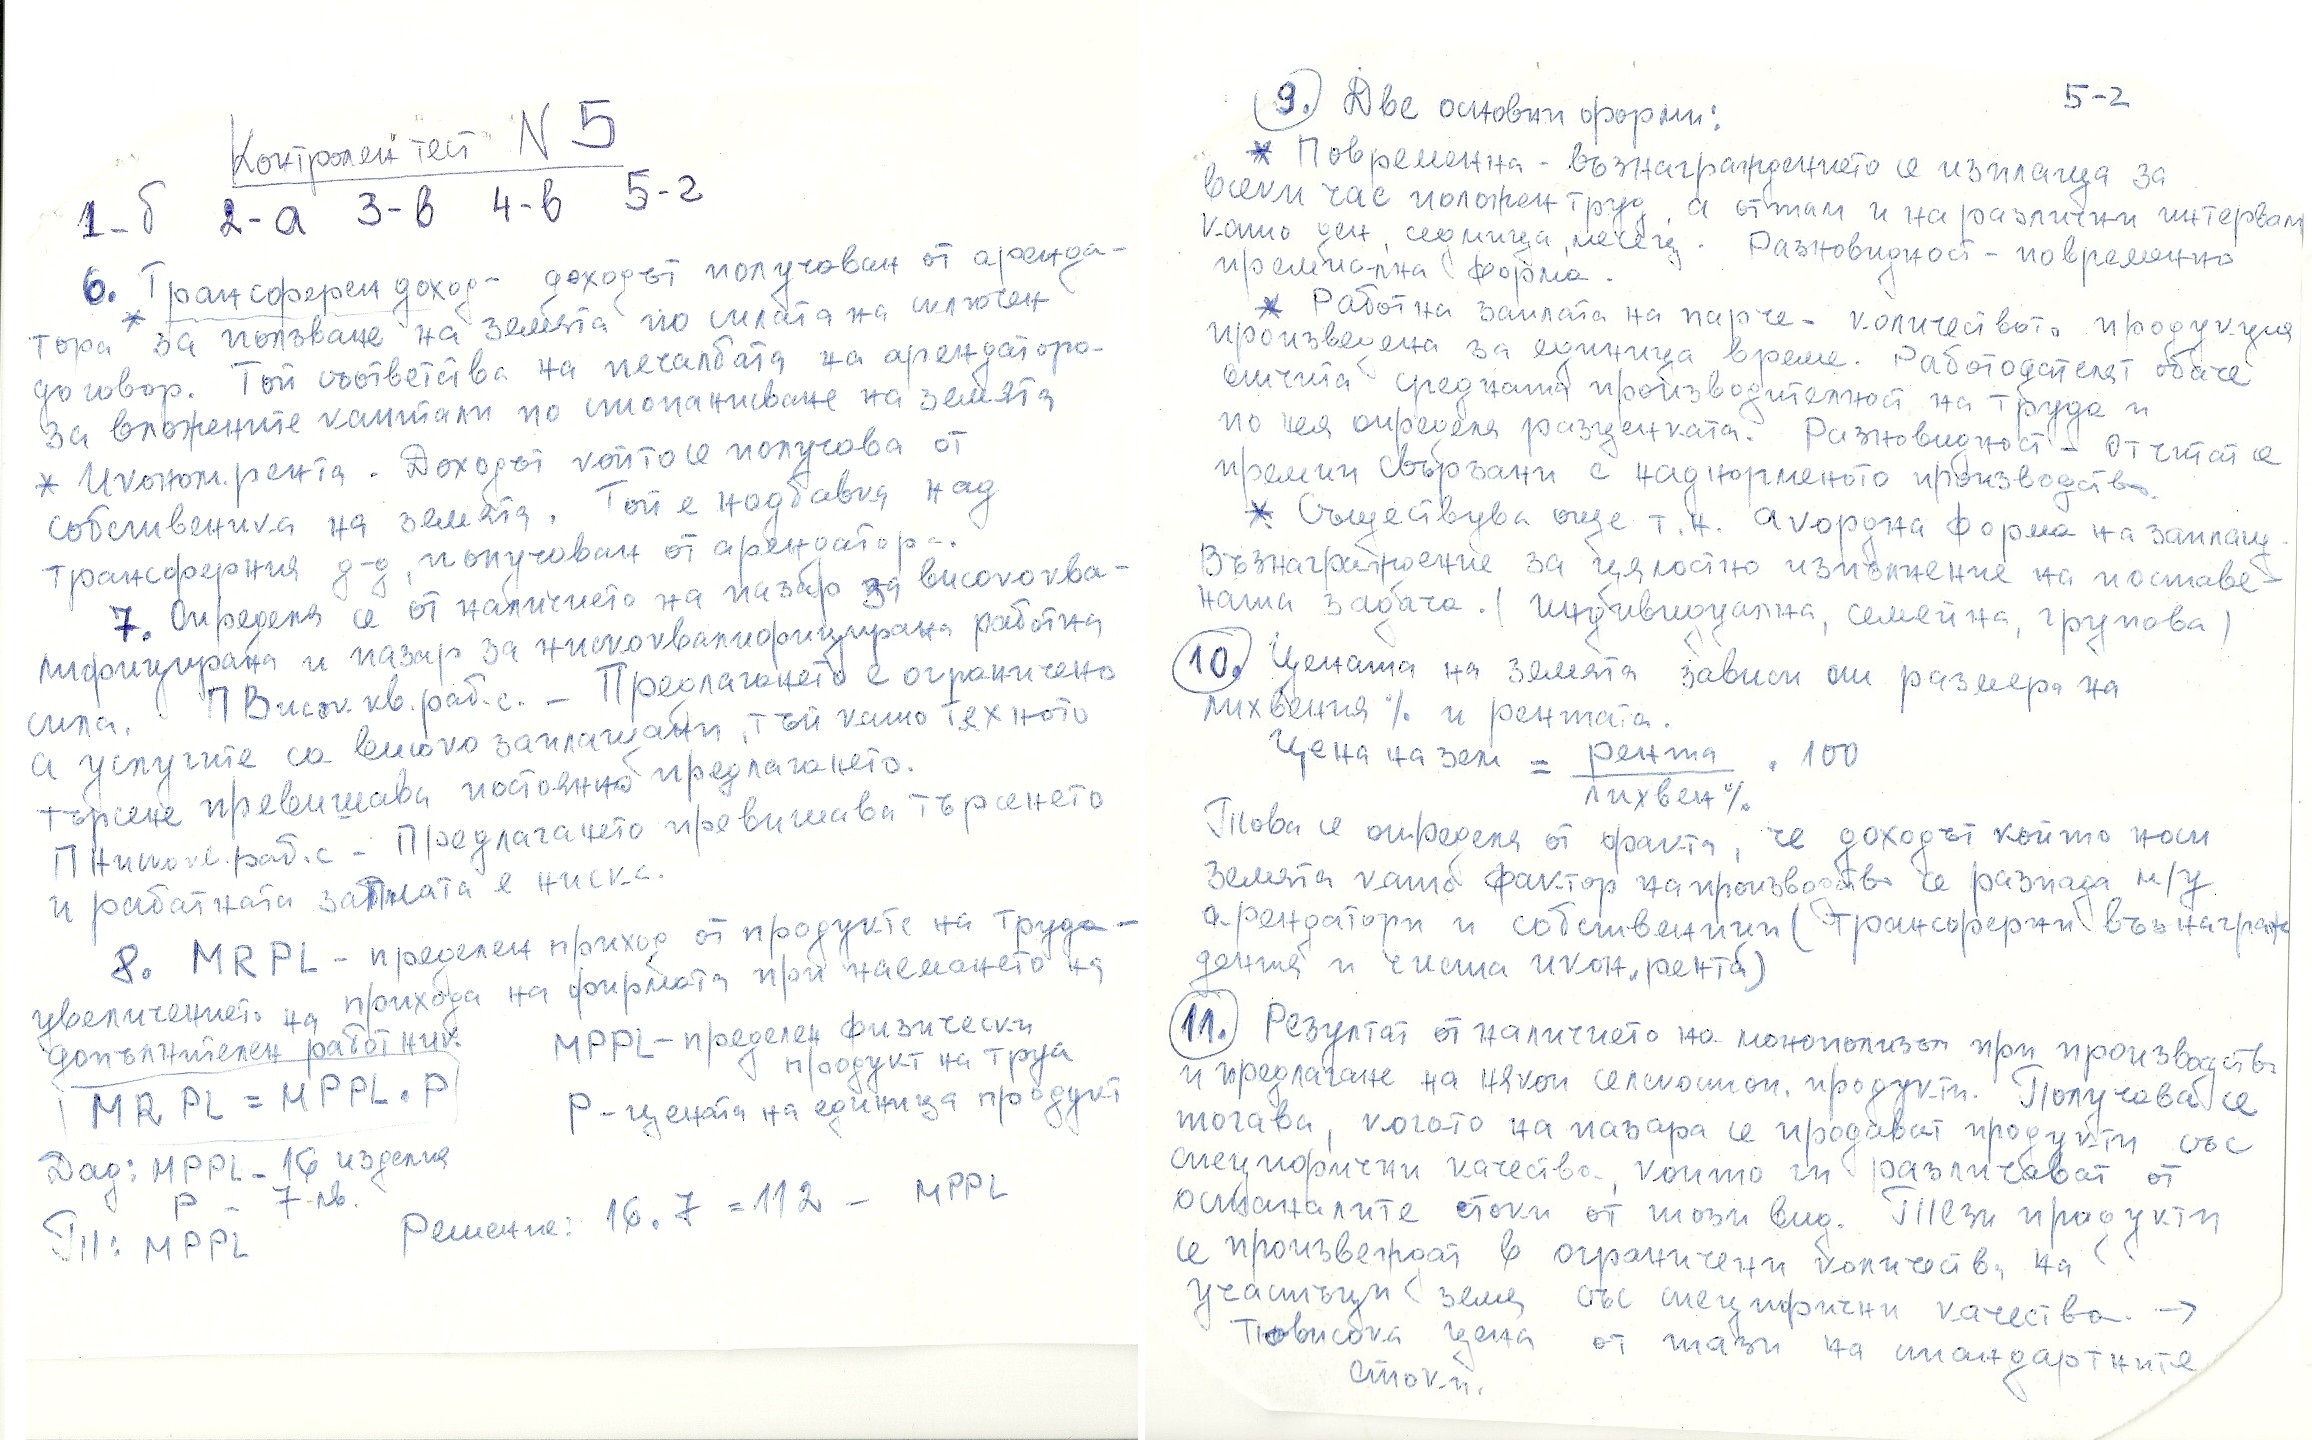 Контролен тест N 5
1-б 2-а 3-в 4-в 5-г
6. Трансферен доход - доходът получаван от аренда-
тора за ползване на земята по силата на сключен
договор. Той съответства на печалбата на арендатора
за вложените капитали по стопанисване на земята
* Иконом. рента. Доходът който се получава от
собственика на земята. Той е надбавка над
трансферния д-д, получаван от арендатора.
7. Определя се от наличието на пазар за висококва-
лифицирана и пазар за нискоквалифицирана работна
сила. П Висок.кв.раб.с. - Предлагането е ограничено
а услугите са високо заплащани, тъй като тяхното
търсене превишава постоянно предлагането.
П Нискокв.раб.с - Предлагането превишава търсенето
и работната заплата е ниска.
8. MRPL - пределен приход от продукта на труда -
увеличението на прихода на фирмата при наемането на
допълнителен работник.
MPPL - пределен физически
продукт на труа
MRPL = MPPL . P
P - цената на единица продукт
Дад: MPPL - 16 изделия
P - 7 лв.
Тп: MPPL
Решение: 16 . 7 = 112 - MPPL
5-2
9. Две основни форми:
* Повременна - възнаграждението се изплаща за
всеки час положен труд, а оттам и на различни интервали
като ден, седмица, месец. Разновидност - повременно
премиална форма.
* Работна заплата на парче - количеството продукция
произведена за единица време. Работодателят обаче
отчита средната производителност на труда и
по нея определя разценката. Разновидност - Отчитат се
премии свързани с наднорменото производство.
* Съществува още т.н. акордна форма на заплащ.
Възнаграждение за цялостно изпълнение на поставе-
ната задача. (индивидуална, семейна, групова)
10. Цената на земята зависи от размера на
лихвения % и рентата.
Цена на зем = рента / лихвен % . 100
Това се определя от факта, че доходът който носи
земята като фактор на производство се разпада м/у
арендатори и собственици (трансферни възнаграж
дения и чиста икон. рента)
11. Резултат от наличието на монополизъм при производство
и предлагане на някои селскостоп. продукти. Получава се
тогава, когато на пазара се продават продукти със
специфични качества, които ги различават от
останалите стоки от този вид. Тези продукти
се произвеждат в ограничени количества на
участъци земя със специфични качества →
по висока цена от тази на стандартните
стоки.